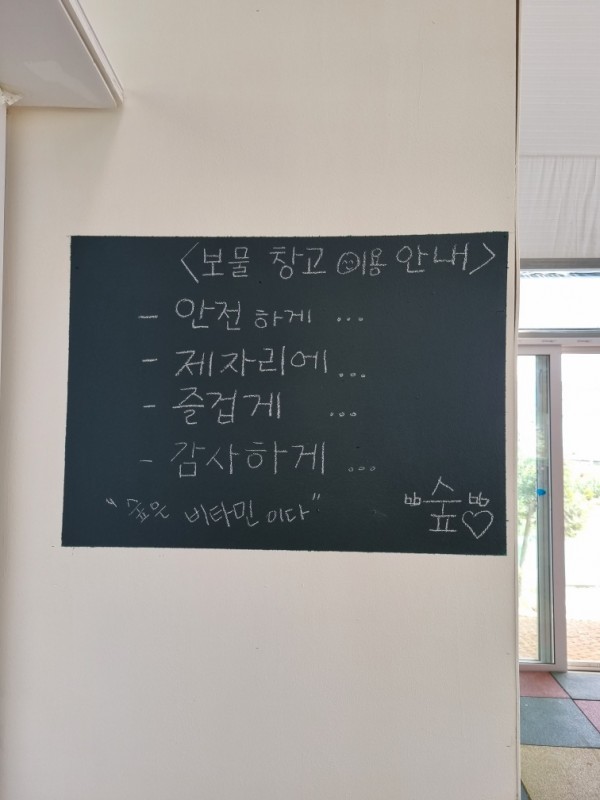 <보물 창고 이용 안내>
- 안전하게 ...
- 제자리에...
- 즐겁게 ...
- 감사하게 ...
"숲은 비타민이다"
숲♡